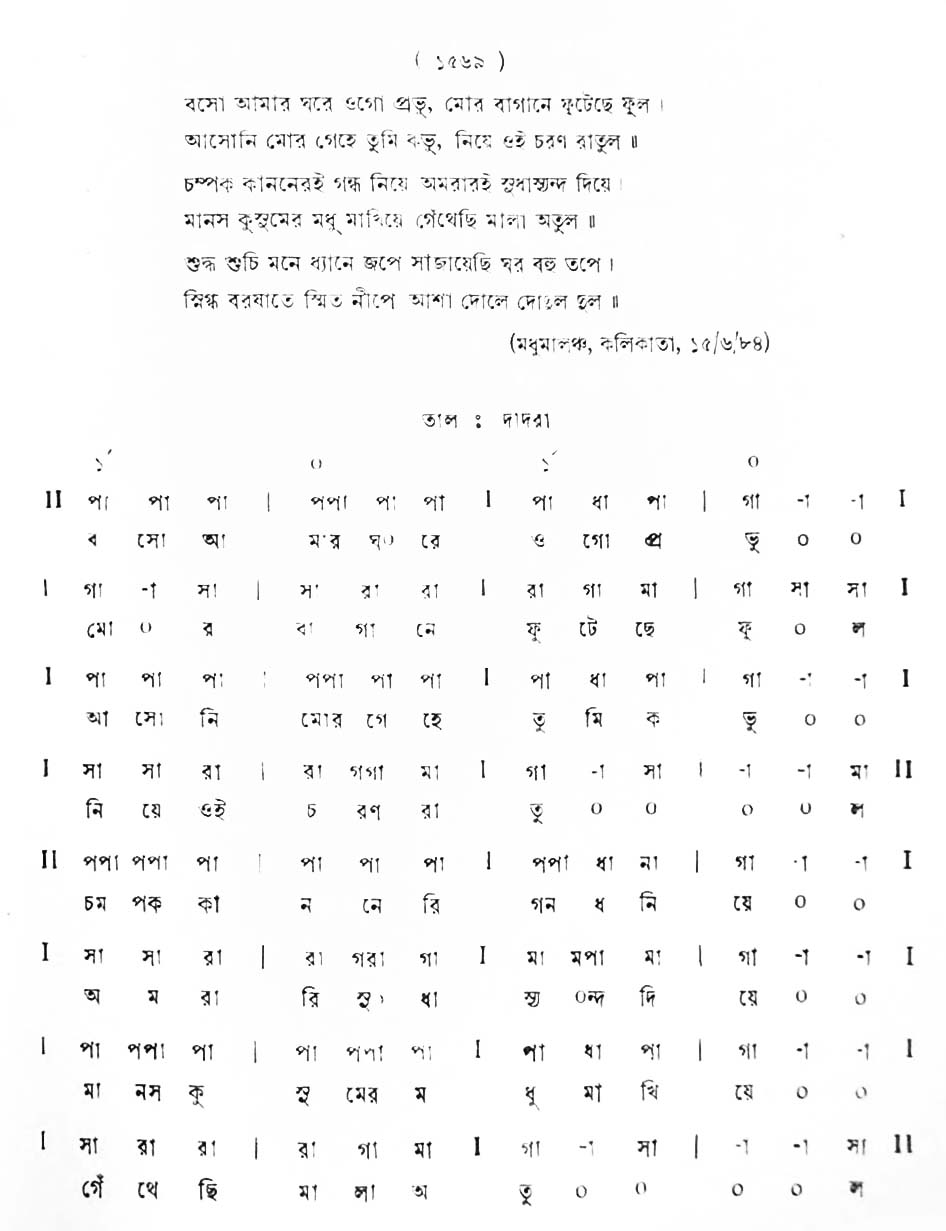 ( ১৫৬৯ )
বসো আমার ঘরে ওগো প্রভু, মোর বাগানে ফুটেছে ফুল ।
আসোনি মোর গেহে তুমি কভু, নিয়ে ওই চরণ রাতুল ॥
চম্পক কাননেরই গন্ধ নিয়ে অমরারই সুধাস্যন্দ দিয়ে ।
মানস কুসুমের মধু মাখিয়ে গেঁথেছি মালা অতুল ॥
শুদ্ধ শুচি মনে ধ্যানে জপে সাজায়েছি ঘর বহু তপে ।
স্নিগ্ধ বরষাতে স্মিত নীপে আশা দোলে দোদুল দুল ॥
(মধুমালঞ্চ, কলিকাতা, ১৫/৬/৮৪)
তাল ঃ দাদরা
১´ ০ ১´ ০
II পা পা পা | পপা পা পা I পা ধা পা | গা -া -া I
ব সো আ মার ঘ০ রে ও গো প্র ভু ০ ০
I গা -া সা | সা রা রা I রা গা মা | গা সা সা I
মো ০ র বা গা নে ফু টে ছে ফু ০ ল
I পা পা পা | পপা পা পা I পা ধা পা | গা -া -া I
আ সো নি মোর গে হে তু মি ক ভু ০ ০
I সা সা রা | রা গগা মা I গা -া সা | -া -া মা II
নি য়ে ওই চ রণ রা তু ০ ০ ০ ০ ল
II পপা পপা পা | পা পা পা I পপা ধা না | গা -া -া I
চম পক কা ন নে রি গন ধ নি য়ে ০ ০
I সা সা রা | রা গরা গা I মা মপা মা | গা -া -া I
অ ম রা রি সু০ ধা স্য ০ন্দ দি য়ে ০ ০
I পা পপা পা | পা পপা পা I পা ধা পা | গা -া -া I
মা নস কু সু মের ম ধু মা খি য়ে ০ ০
I সা রা রা | রা গা মা I গা -া সা | -া -া সা II
গেঁ থে ছি মা লা অ তু ০ ০ ০ ০ ল